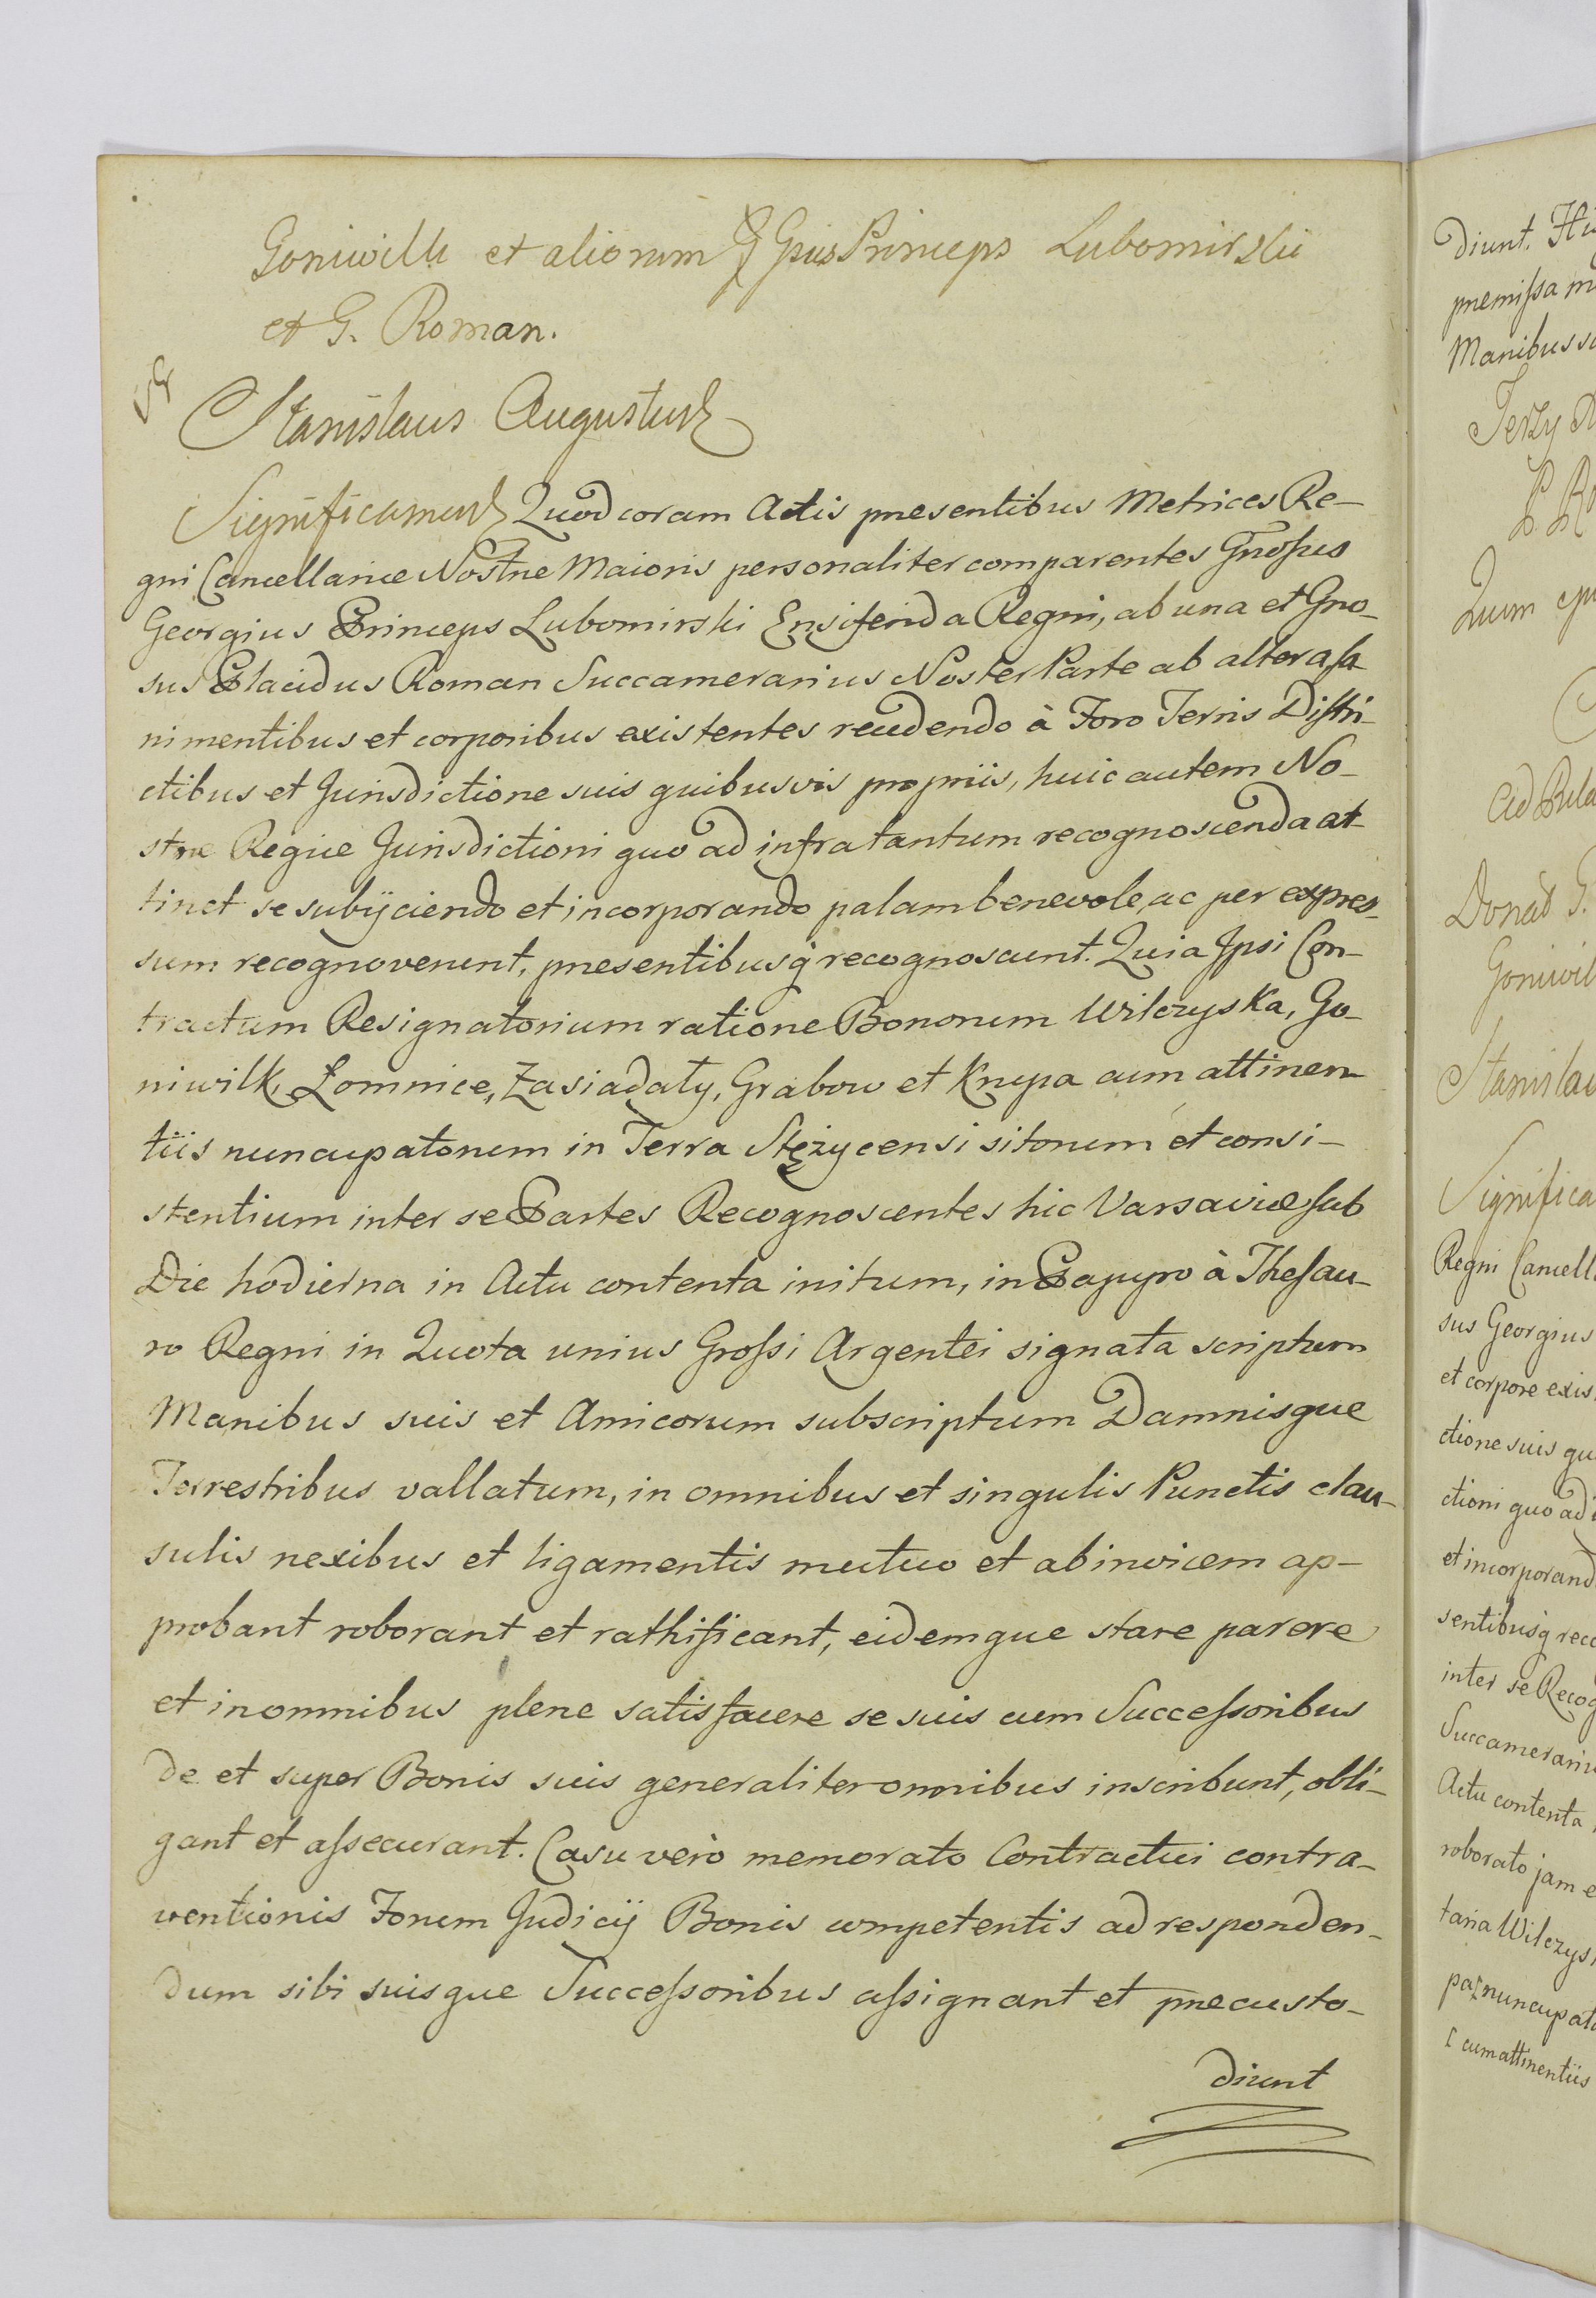 Goniwilk et aliorum Gsus Princeps Lubomirski
et G. Roman.
Stanislaus Augustus
Significamus Quod coram Actis presentibus Metrices Re-
gni Cancellariæ Nostræ Maioris personaliter comparentes Gnosus
Georgius Princeps Lubomirski Ensiferida Regni, ab una et Gno-
sus Placidus Roman Succamerarius Noster Parte ab altera, sa-
ni mentibus et corporibus existentes recedendo à Foro Terris Distri-
ctibus et Jurisdictione suis quibusvis propriis, huic autem No-
stræ Regiæ Jurisdictioni quo ad infra tantum recognoscenda at-
tinet se subijciendo et incorporando palam benevole, ac per expres-
sum recognoverunt, presentibusq recognoscunt. Quia Ipsi Con-
tractum Resignatorium ratione Bonorum Wilczyska, Go-
niwilk, Łomnice, Zasiadały, Grabow et Krupa cum attinen-
tiis nuncupatorum in Terra Stężycensi sitorum et consi-
stentium inter se Partes Recognoscentes hic Varsaviæ sub
Die hodierna in Actu contenta initum, in Papyro à Thesau-
ro Regni in Quota unius Grossi Argentei signata scriptum
Manibus suis et Amicorum subscriptum Damnisque
Terrestribus vallatum, in omnibus et singulis Punctis clau-
sulis nexibus et ligamentis mutuo et abinvicem ap-
probant roborant et rathificant, eidemque stare parere
et in omnibus plene satisfacere se suis cum Successoribus
de et super Bonis suis generaliter omnibus inscribunt, obli-
gant et assecurant. Casu verò memorato Contractui contra-
ventionis Forum Judicij Bonis competentis ad responden-
dum sibi suisque Successoribus assignant et præcusto-
diunt
diunt.
præmissa
Manibus
Jerzy
Stanislau
Significa
Regni Cancell
sus Georgius
et corpore exis
ctione suis qu
ctioni quo ad i
et incorporand
sentibusq reco
inter se Recog
Succamerariu
Actu contenta
roborato jam e
taria Wilczys
pa nuncupato
cum attinentiis